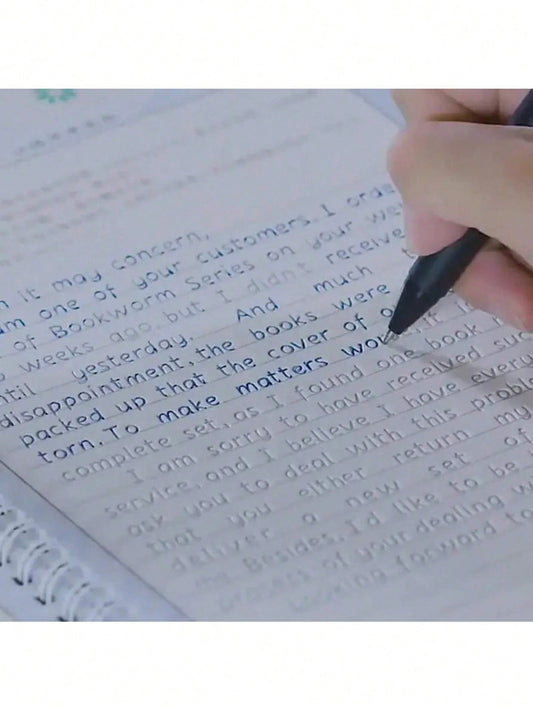 it may concern,
am one of your customers. I orde
of Bookworm Series on your we
weeks ago, but I didn't receive
til yesterday. And much
disappointment, the books were
packed up that the cover of o
torn. To make matters wo
complete set, as I found one book
I am sorry to have received suc
service, and I believe I have every
ask you to deal with this proble
that you either return my
deliver a new set of
Besides, I'd like to be
process of your dealing w
looking forward to